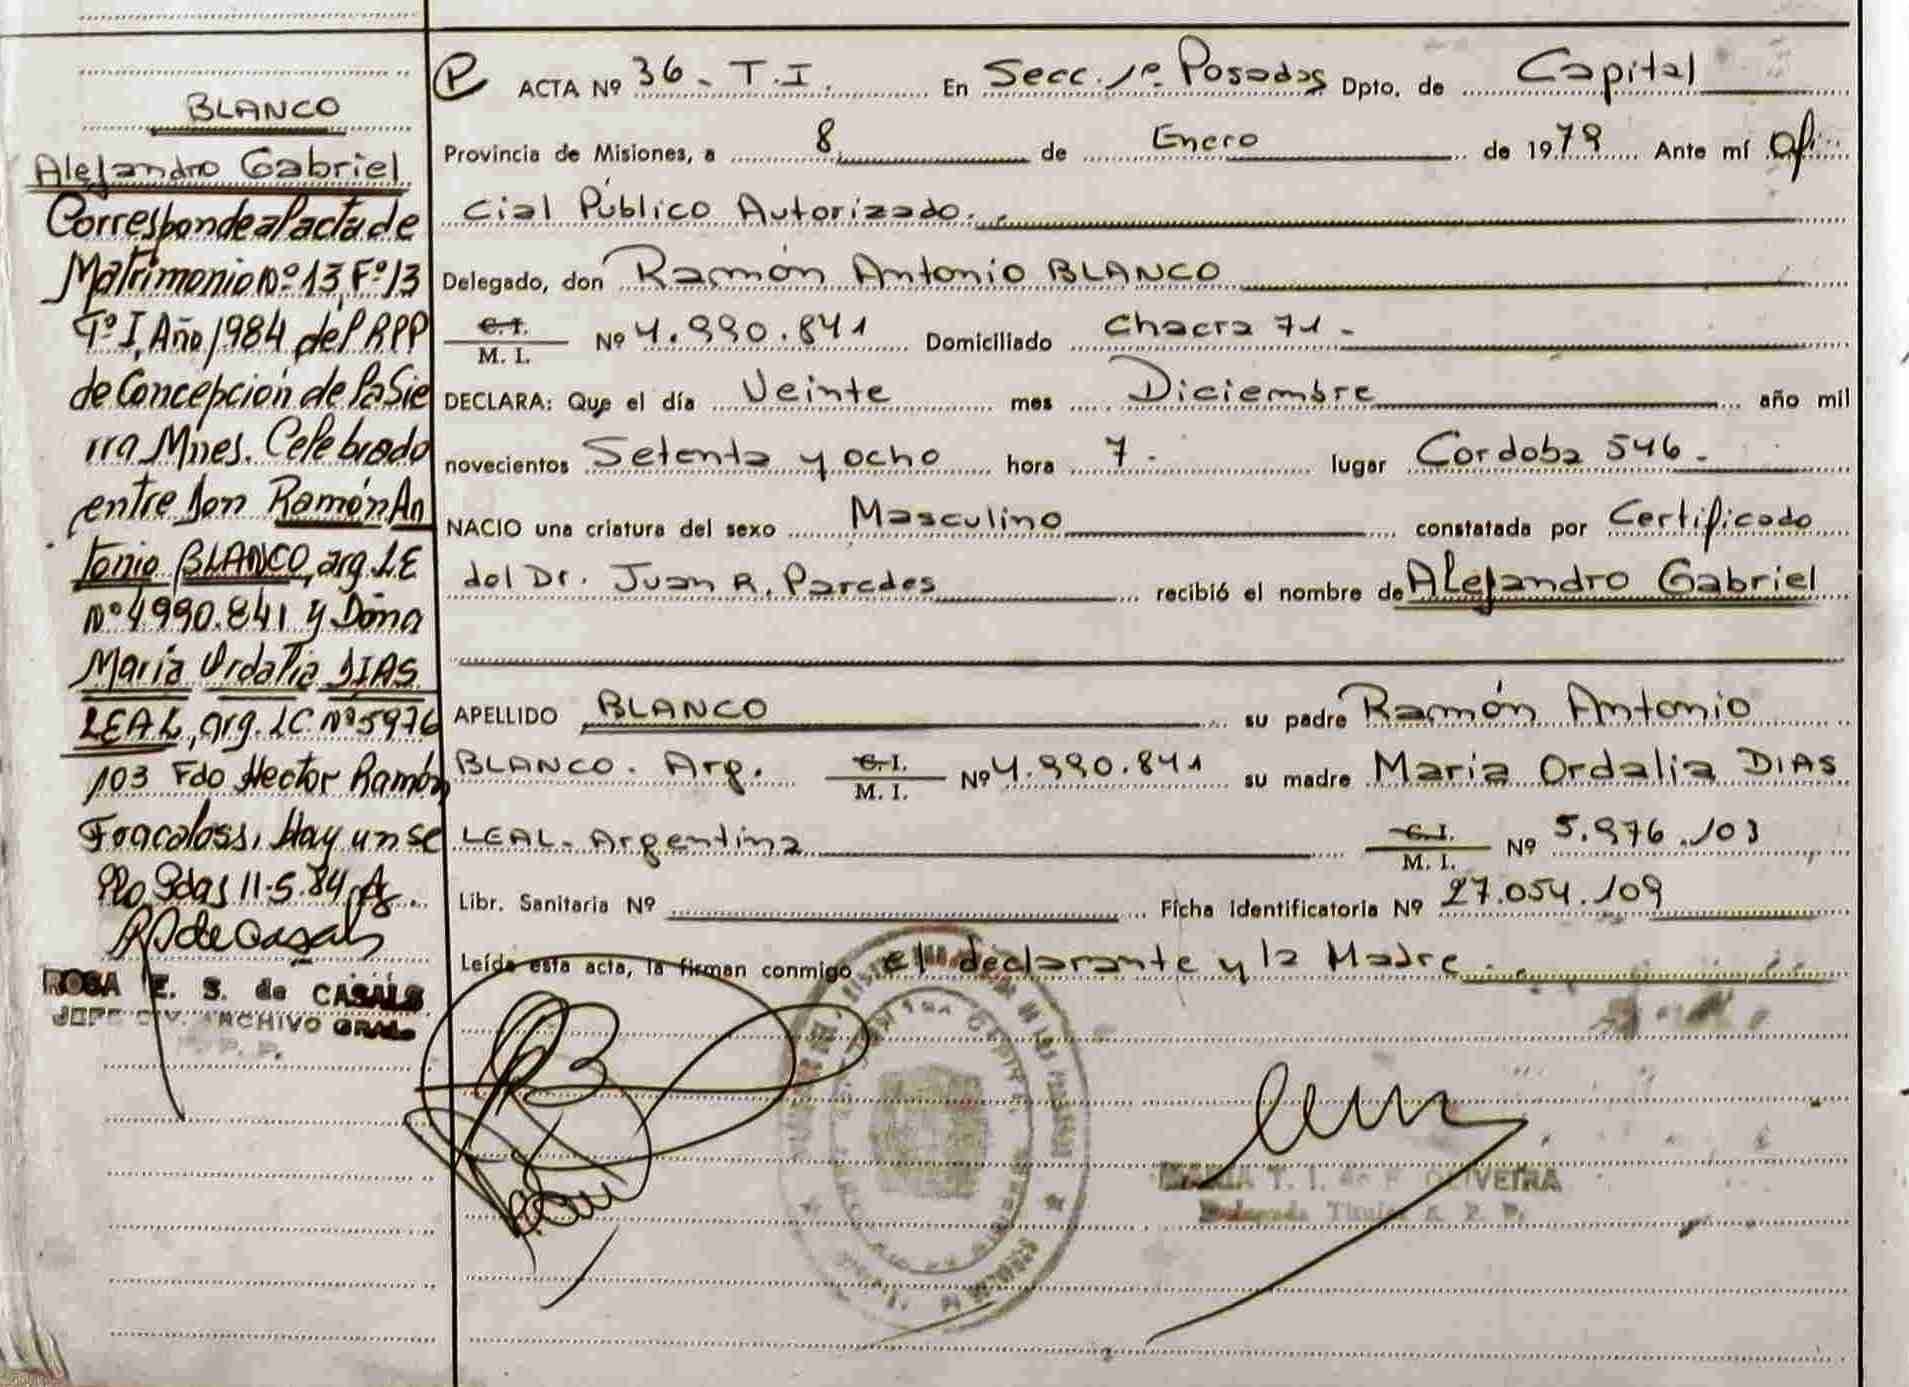 BLANCO
Alejandro Gabriel
Corresponde al acta de
Matrimonio Nº 13, Fº 13
Tº I, Año 1984 del RPP
de Concepción de la Sie
rra Mnes. Celebrado
entre don Ramón An
tonio BLANCO, arg. L.E
Nº 4.990.841 y Doña
María Ordalia DIAS
LEAL, arg. LC. Nº 5976
103 Fdo Hector Ramón
Hay un se
llo Pdas 11-5-84
ROSA E. S. de CASALS
JEFE DIV. ARCHIVO GRAL.
R. P. P.
P ACTA Nº 36 - T. I. En Secc. 1ª Posadas Dpto. de Capital
Provincia de Misiones, a 8 de Enero de 1979 Ante mí Ofi
cial Público Autorizado.
Delegado, don Ramón Antonio BLANCO
C. I. M. I. Nº 4.990.841 Domiciliado Chacra 71 -
DECLARA: Que el día Veinte mes Diciembre año mil
novecientos Setenta y ocho hora 7 - lugar Córdoba 546 -
NACIO una criatura del sexo Masculino constatada por Certificado
del Dr. Juan R. Paredes recibió el nombre de Alejandro Gabriel
APELLIDO BLANCO su padre Ramón Antonio
BLANCO - Arg. C. I. M. I. Nº 4.990.841 su madre Maria Ordalia DIAS
LEAL - Argentina C. I. M. I. Nº 5.976.103
Libr. Sanitaria Nº Ficha identificatoria Nº 27.054.109
Leída esta acta, la firman conmigo el declarante y la Madre.
MARIA T. I. de OLIVEIRA
Delegada Titular R. P. P.